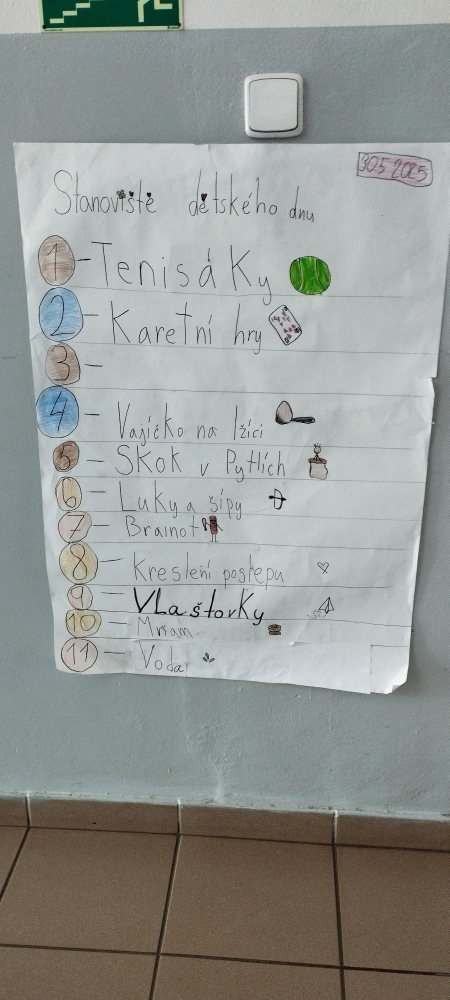 30.5 2025
Stanoviště dětského dnu
1 - Tenisáky
2 - Karetní hry
3 -
4 - Vajíčko na lžíci
5 - Skok v Pytlích
6 - Luky a šípy
7 - Brainot
8 - Kreslení postepu
9 - VLaštovky
10 - Mňam
11 - Voda